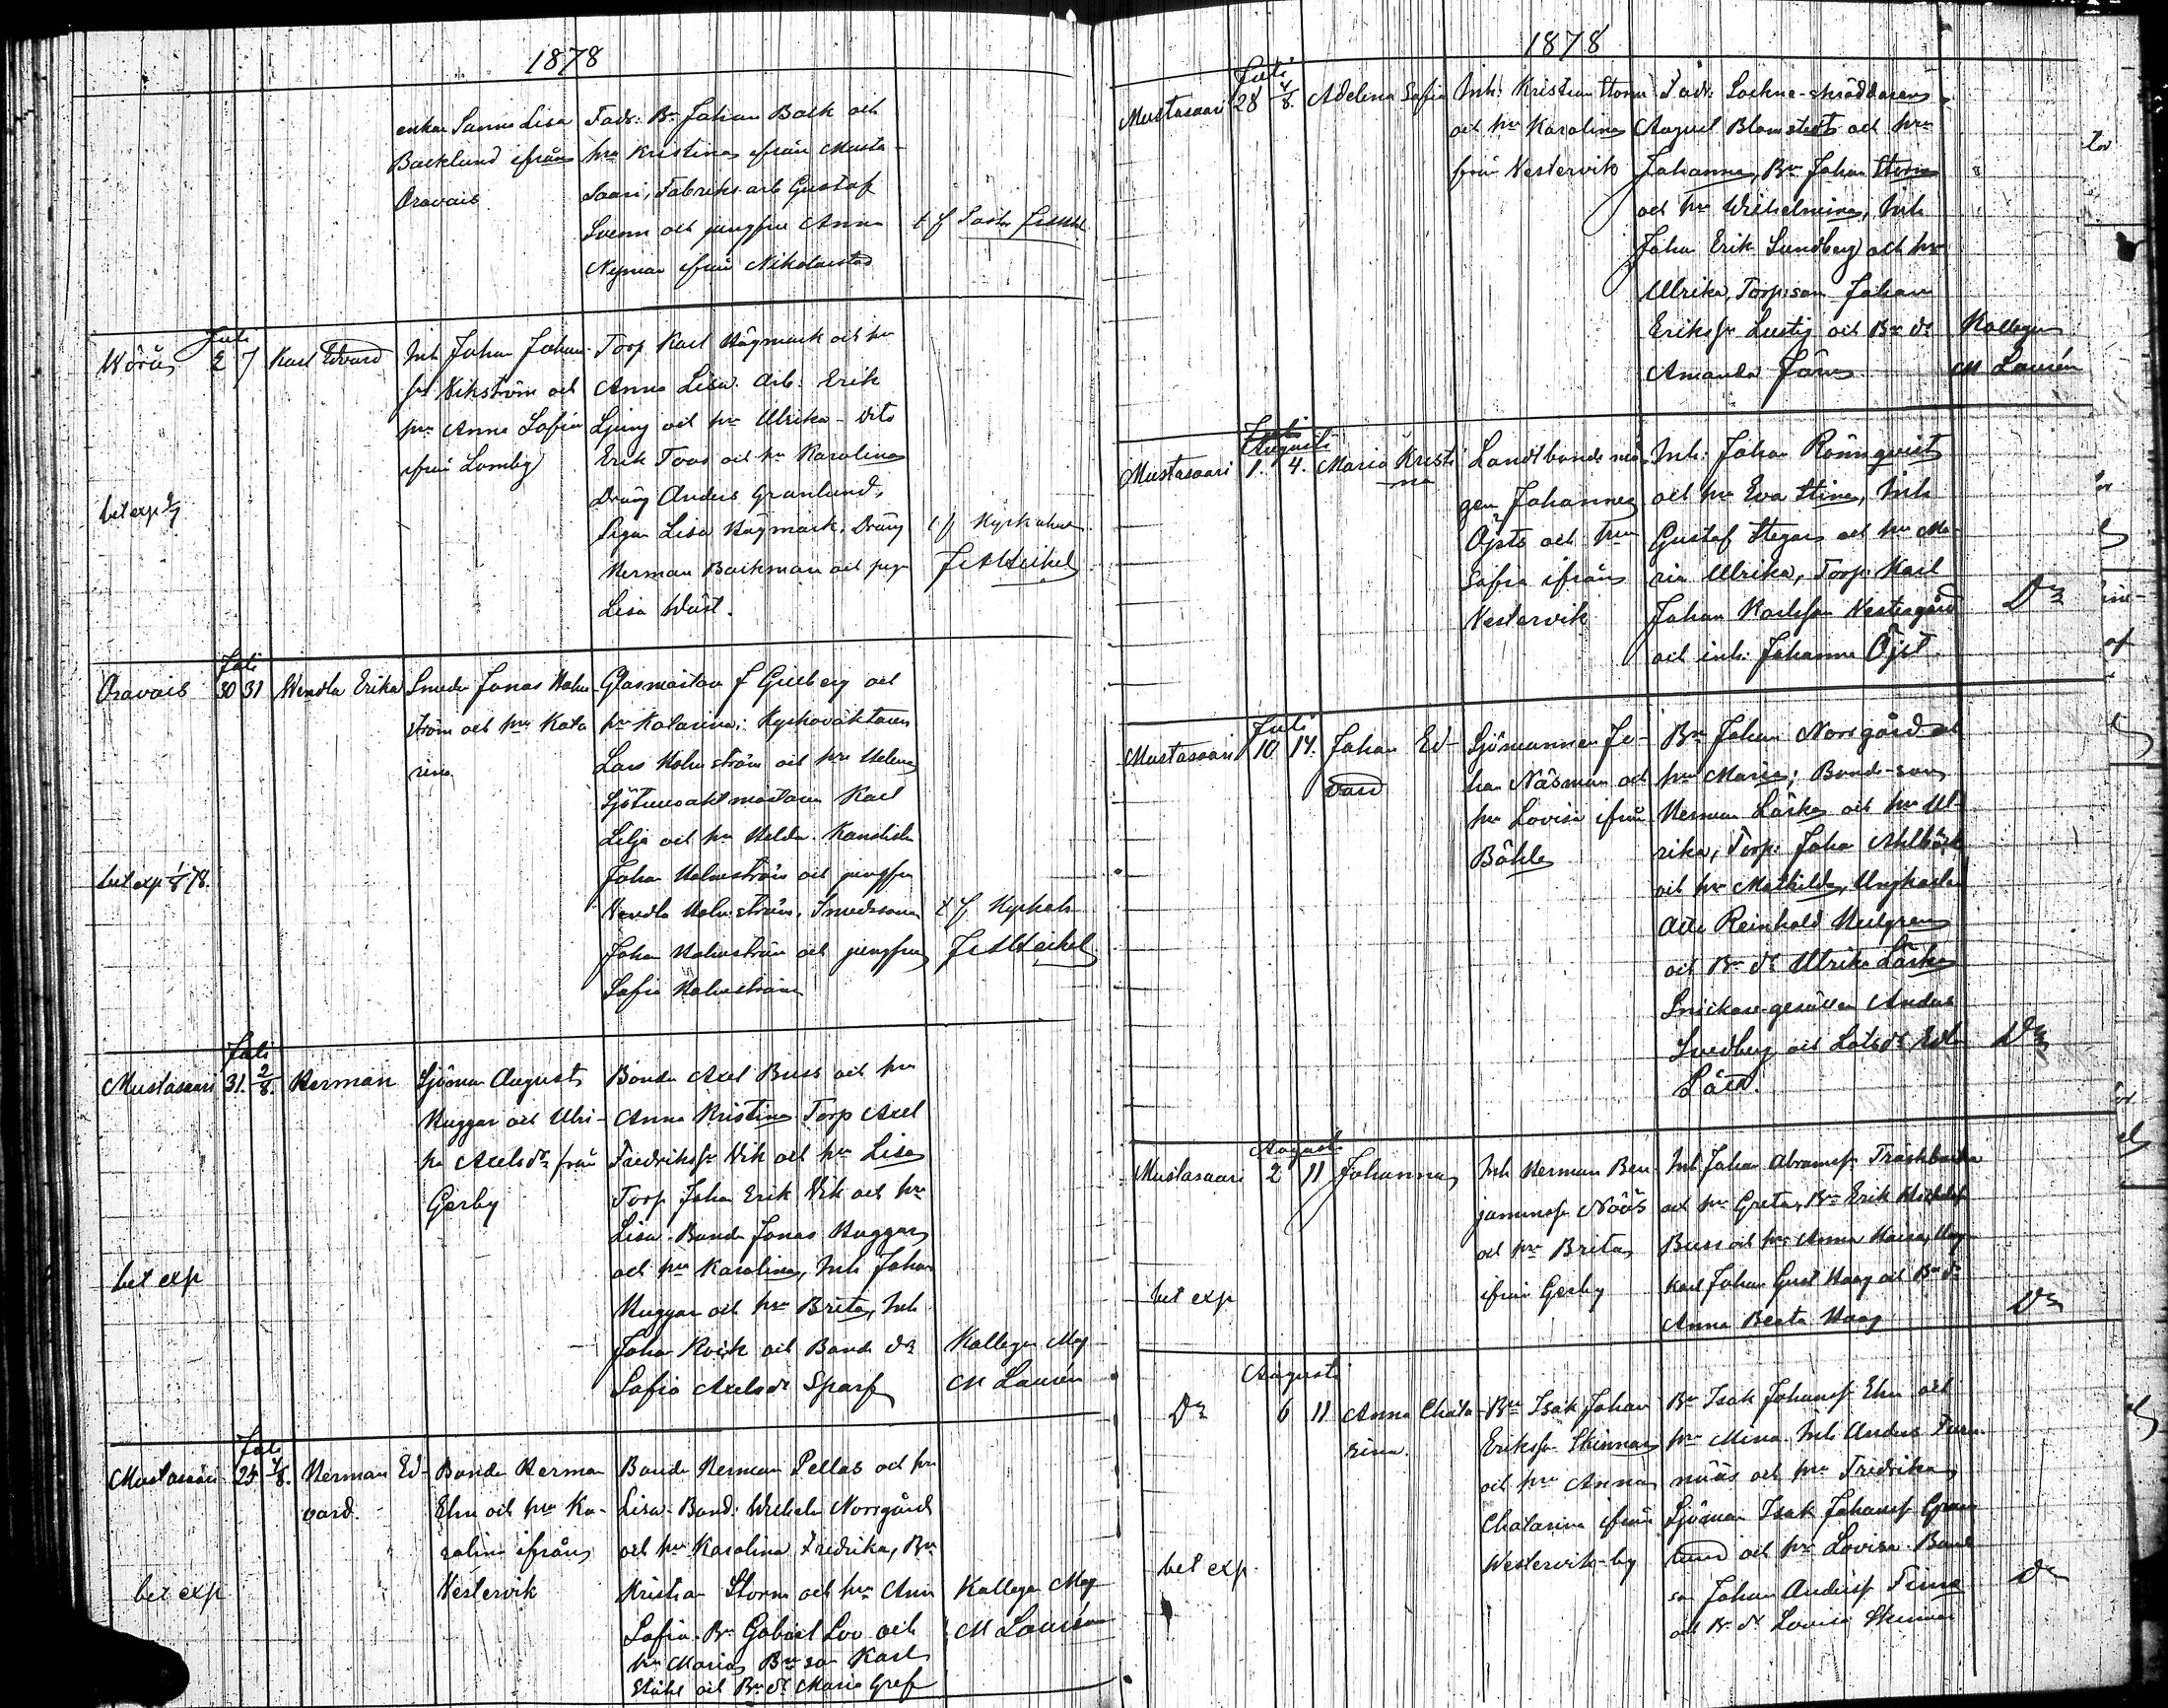 1878
enkan Sanna Lisa
Backlund ifrån
Oravais
Fadr: Bn Johan Back och
hu Kristina ifrån Musta-
saari, Fabriks arb Gustaf
Svenn och jungfru Anna
Nyman ifrån Nikolaistad
t f Past.
Wörå
Juli
2 7
Karl Edvard
Inh Johan Johan
sn Wikström och
hu Anna Sofia
ifrån Lomby
Torp Karl Hägmark och hu
Anna Lisa. Arb. Erik
Ljung och hu Ulrika - dito
Erik Toos och hu Karolina
Dräng Anders Granlund,
Pigan Lisa Hägmark. Dräng
Herman Backman och piga
Lisa Wäst.
bet exp
t f Kyrkoherd
Oravais
Juli
30 31
Wendla Erika
Smeden Jonas Holm
ström och hu Kata
rina
Glasmästar f Greberg och
hu Katarina; Kyrkoväktaren
Lars Holmström och hu Helena
Karl
Lilja och hu Hilda.
Johan Holmström och jungfru
Wendla Holmström. Smedssonen
Johan Holmström och jungfru
Sofia Holmström
bet exp 1/8 78.
t f Kyrkoh
Mustasaari
Juli
31. 2/8.
Herman
Sjöman August
Nuggar och Ulri-
ka Axelsdr från
Gerby
Bonden Axel Buss och hu
Anna Kristina Torp Axel
Fredrikssn Vik och hu Lisa
Torp Johan Erik Vik och hu
Lisa. Bonden Jonas Nuggar
och hu Karolina, Inh Johan
Nuggar och hu Brita, Inh
Johan Kvik och Bonde dr
Sofia Axelsdr Sparf
bet exp
Kollegan Mag
M Laurén
Mustasaari
Juli
25 4/8.
Herman Ed-
vard.
Bonden Herman
Elm och hu Ka-
rolina ifrån
Vestervik
Bonden Herman Pellas och hu
Lisa. Bond: Wilhelm Norrgård
och hu Karolina Fredrika, Bn
Kristian Storm och hu Ann
Sofia. Bn Gabriel Loo och
hu Maria, Bn son Karl
Ståhl och Bn dr Maria Gref
bet exp
Kollegan Mag
M Laurén
1878
Mustasaari
Juli
28 4/8.
Adelina Sofia
Inh: Kristian Storm
och hu Karolina
från Vestervik
Fadr: Sockne-skräddaren
August Blomstedt och hu
Johanna, Bn Johan Storm
och hu Wilhelmina, Inh
Johan Erik Sundberg och hu
Ulrika, Torp.son Johan
Erikssn Lustig och Bn dr
Amanda
Kollegan
M Laurén
Mustasaari
Juli
Augusti
1. 4.
Maria Kristi
na
Landtbonde må-
gen Johannes
Öjst och hu
Sofia ifrån
Vestervik
Inh: Johan Rönnqvist
och hu Eva Stina, Inh
Gustaf Stegar och hu Ma-
ria Ulrika, Torp: Karl
Johan Karlsson Vestergård
och inh: Johanna Öjst.
Do
Mustasaari
Juli
10 14.
Johan Ed-
vard
Sjömannen Jo-
han Näsman och
hu Lovisa ifrån
Böhle
Bn Johan Norrgård och
hu Maria; Bonde-son
Herman Lärka och hu Ul-
rika, Torp: Johan Ahlbäck
och hu Mathilda, Ungkarlen
Reinhold
och Bn dr Ulrika Lärka
Snickare-gesällen Anders
Svedberg och
Do
Mustasaari
Augusti
2 11
Johanna
Inh Herman Ben
jaminssn Nääs
och hu Brita
ifrån Gerby
Inh Johan Abramssn Träskbacka
och hu Greta, Bn Erik
Buss och hu Anna Kaisa, Ung-
karl Johan Gust Haag och Bn dr
Anna Beata Haag
bet exp
Do
Augusti
Do
6 11
Anna Chata-
rina.
Bn Isak Johan
Erikssn Skinnar
och hu Anna
Chatarina ifrån
Westervik-by
Bn Isak Johanssn Elm och
hu Mina. Inh Anders Furu
nääs och hu Fredrika
Sjöman Isak Johanssn Gran
lund och hu Lovisa. Bonde
son Johan Anderssn
och Bn dr Lovisa Skinnar
bet exp.
Do